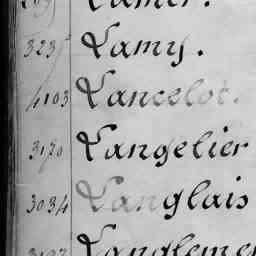 Lamer.
323 Lamy.
4103 Lancelot.
3170 Langelier
3034 Langlais